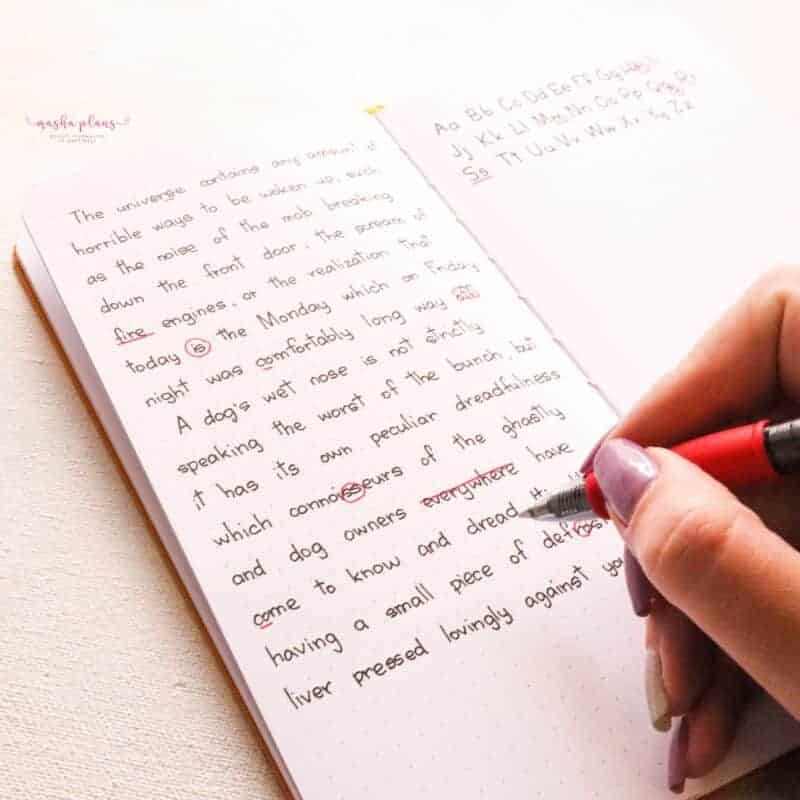 masha plans
The universe contains any amount of
horrible ways to be woken up, such
as the noise of the mob breaking
down the front door, the scream of
fire engines, or the realization that
today is the Monday which on Friday
night was comfortably long way
A dog's wet nose is not strictly
speaking the worst of the bunch, but
it has its own peculiar dreadfulness
which connoisseurs of the ghastly
and dog owners everywhere have
come to know and dread
having a small piece of
liver pressed lovingly against you
Aa Bb Cc Dd Ee Ff Gg Hh Ii
Jj Kk Ll Mm Nn Oo Pp Qq Rr
Ss Tt Uu Vv Ww Xx Yy Zz